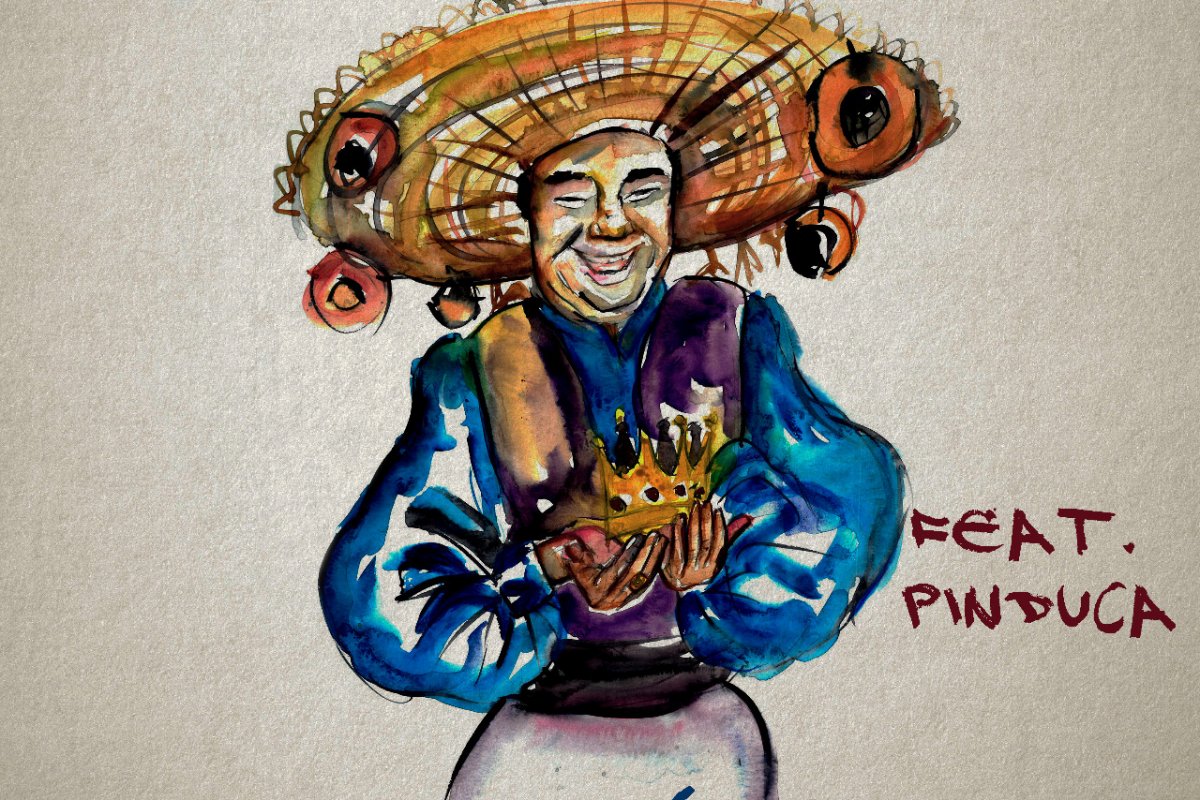 FEAT.
PINDUCA